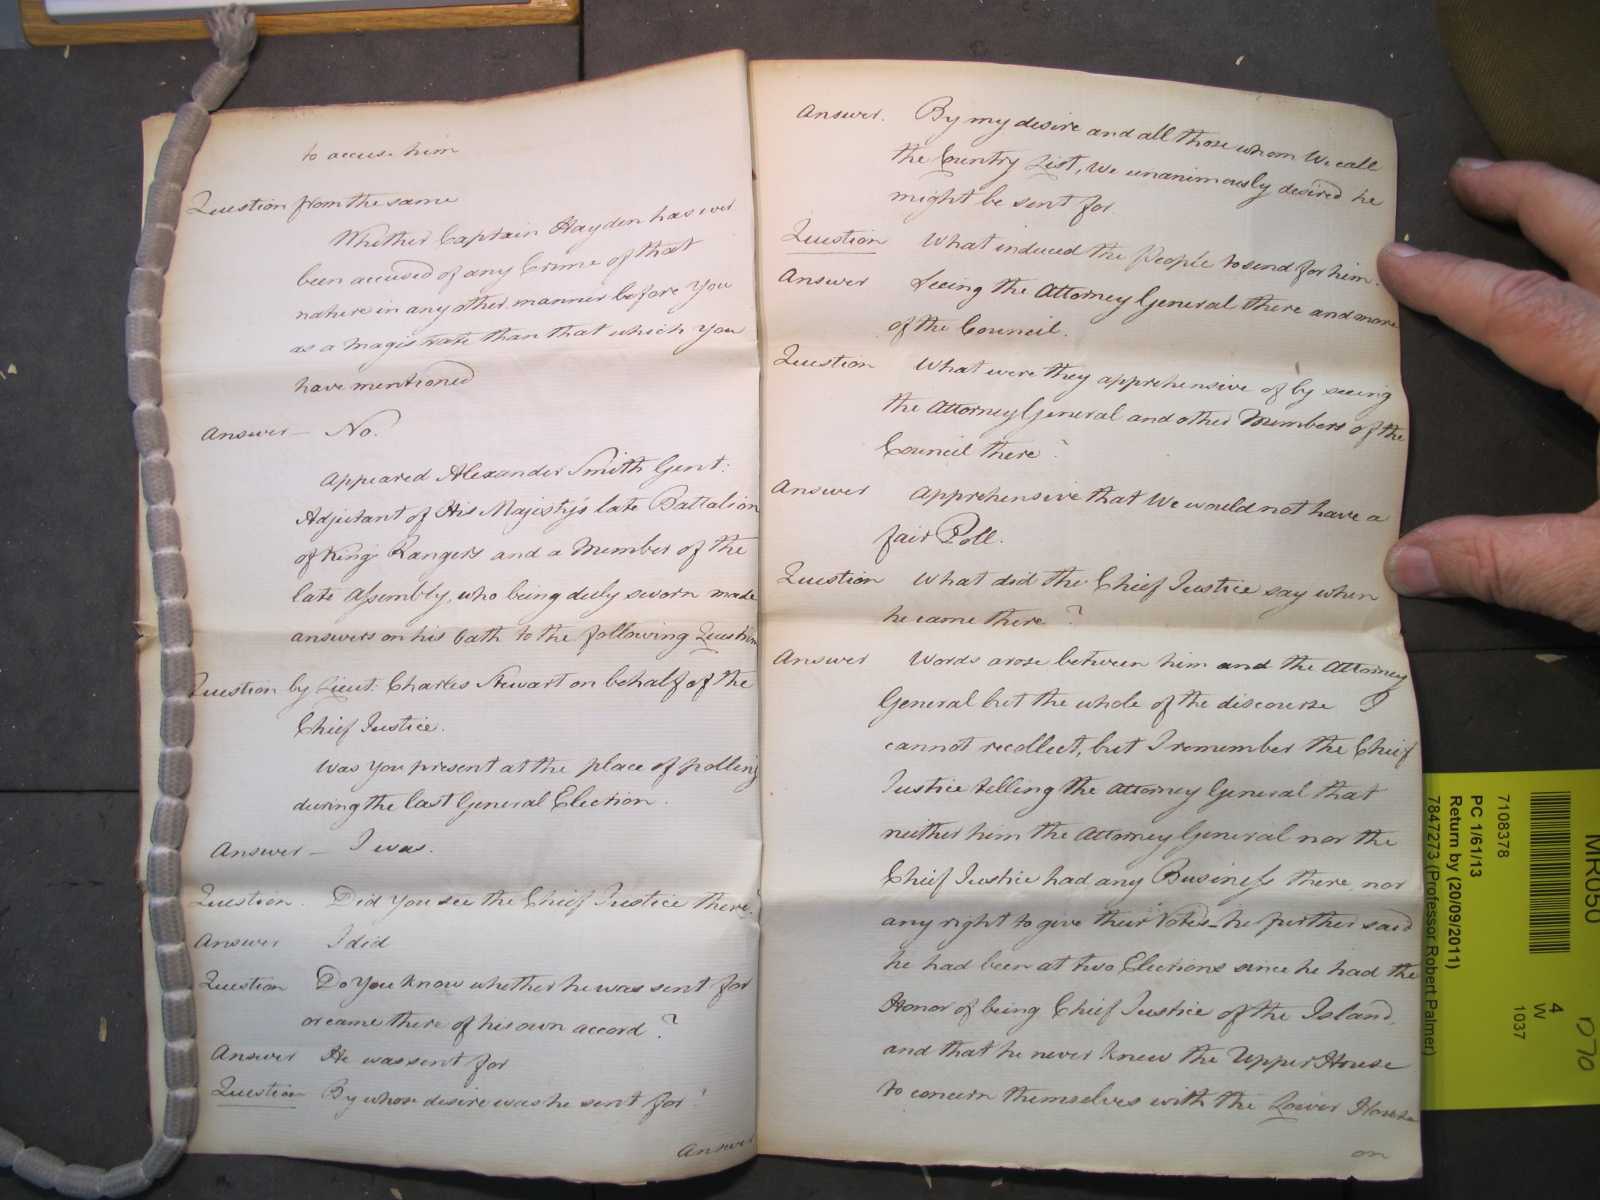 to accuse him
Question from the same
Whether Captain Hayden has ever
been accused of any Crime of that
nature in any other manner before You
as a Magistrate than that which You
have mentioned
Answer — No.
Appeared Alexander Smith Gent:
Adjutant of His Majesty's late Battalion
of King's Rangers and a Member of the
late Assembly, who being duly sworn made
answers on his Oath to the following Question
Question by Lieut: Charles Stewart on behalf of the
Chief Justice.
Was You present at the place of polling
during the last General Election.
Answer — I was.
Question. Did You see the Chief Justice there?
Answer I did
Question Do You know whether he was sent for
or came there of his own accord?
Answer He was sent for
Question By whose desire was he sent for?
Answer
Answer. By my desire and all those whom We call
the Country List, We unanimously desired he
might be sent for.
Question What induced the People to send for him.
Answer Seeing the Attorney General there and more
of the Council.
Question What were they apprehensive of by seeing
the Attorney General and other Members of the
Council there?
Answer Apprehensive that We would not have a
fair Poll.
Question What did the Chief Justice say when
he came there?
Answer Words arose between him and the Attorney
General but the whole of the discourse I
cannot recollect, but I remember the Chief
Justice telling the Attorney General that
neither him the Attorney General nor the
Chief Justice had any Business there, nor
any right to give their Votes – he further said
he had been at two Elections since he had the
Honor of being Chief Justice of the Island,
and that he never knew the Upper House
to concern themselves with the Lower House
on
MR050
070
4
W
1037
7108378
PC 1/61/13
Return by (20/09/2011)
7847273 (Professor Robert Palmer)